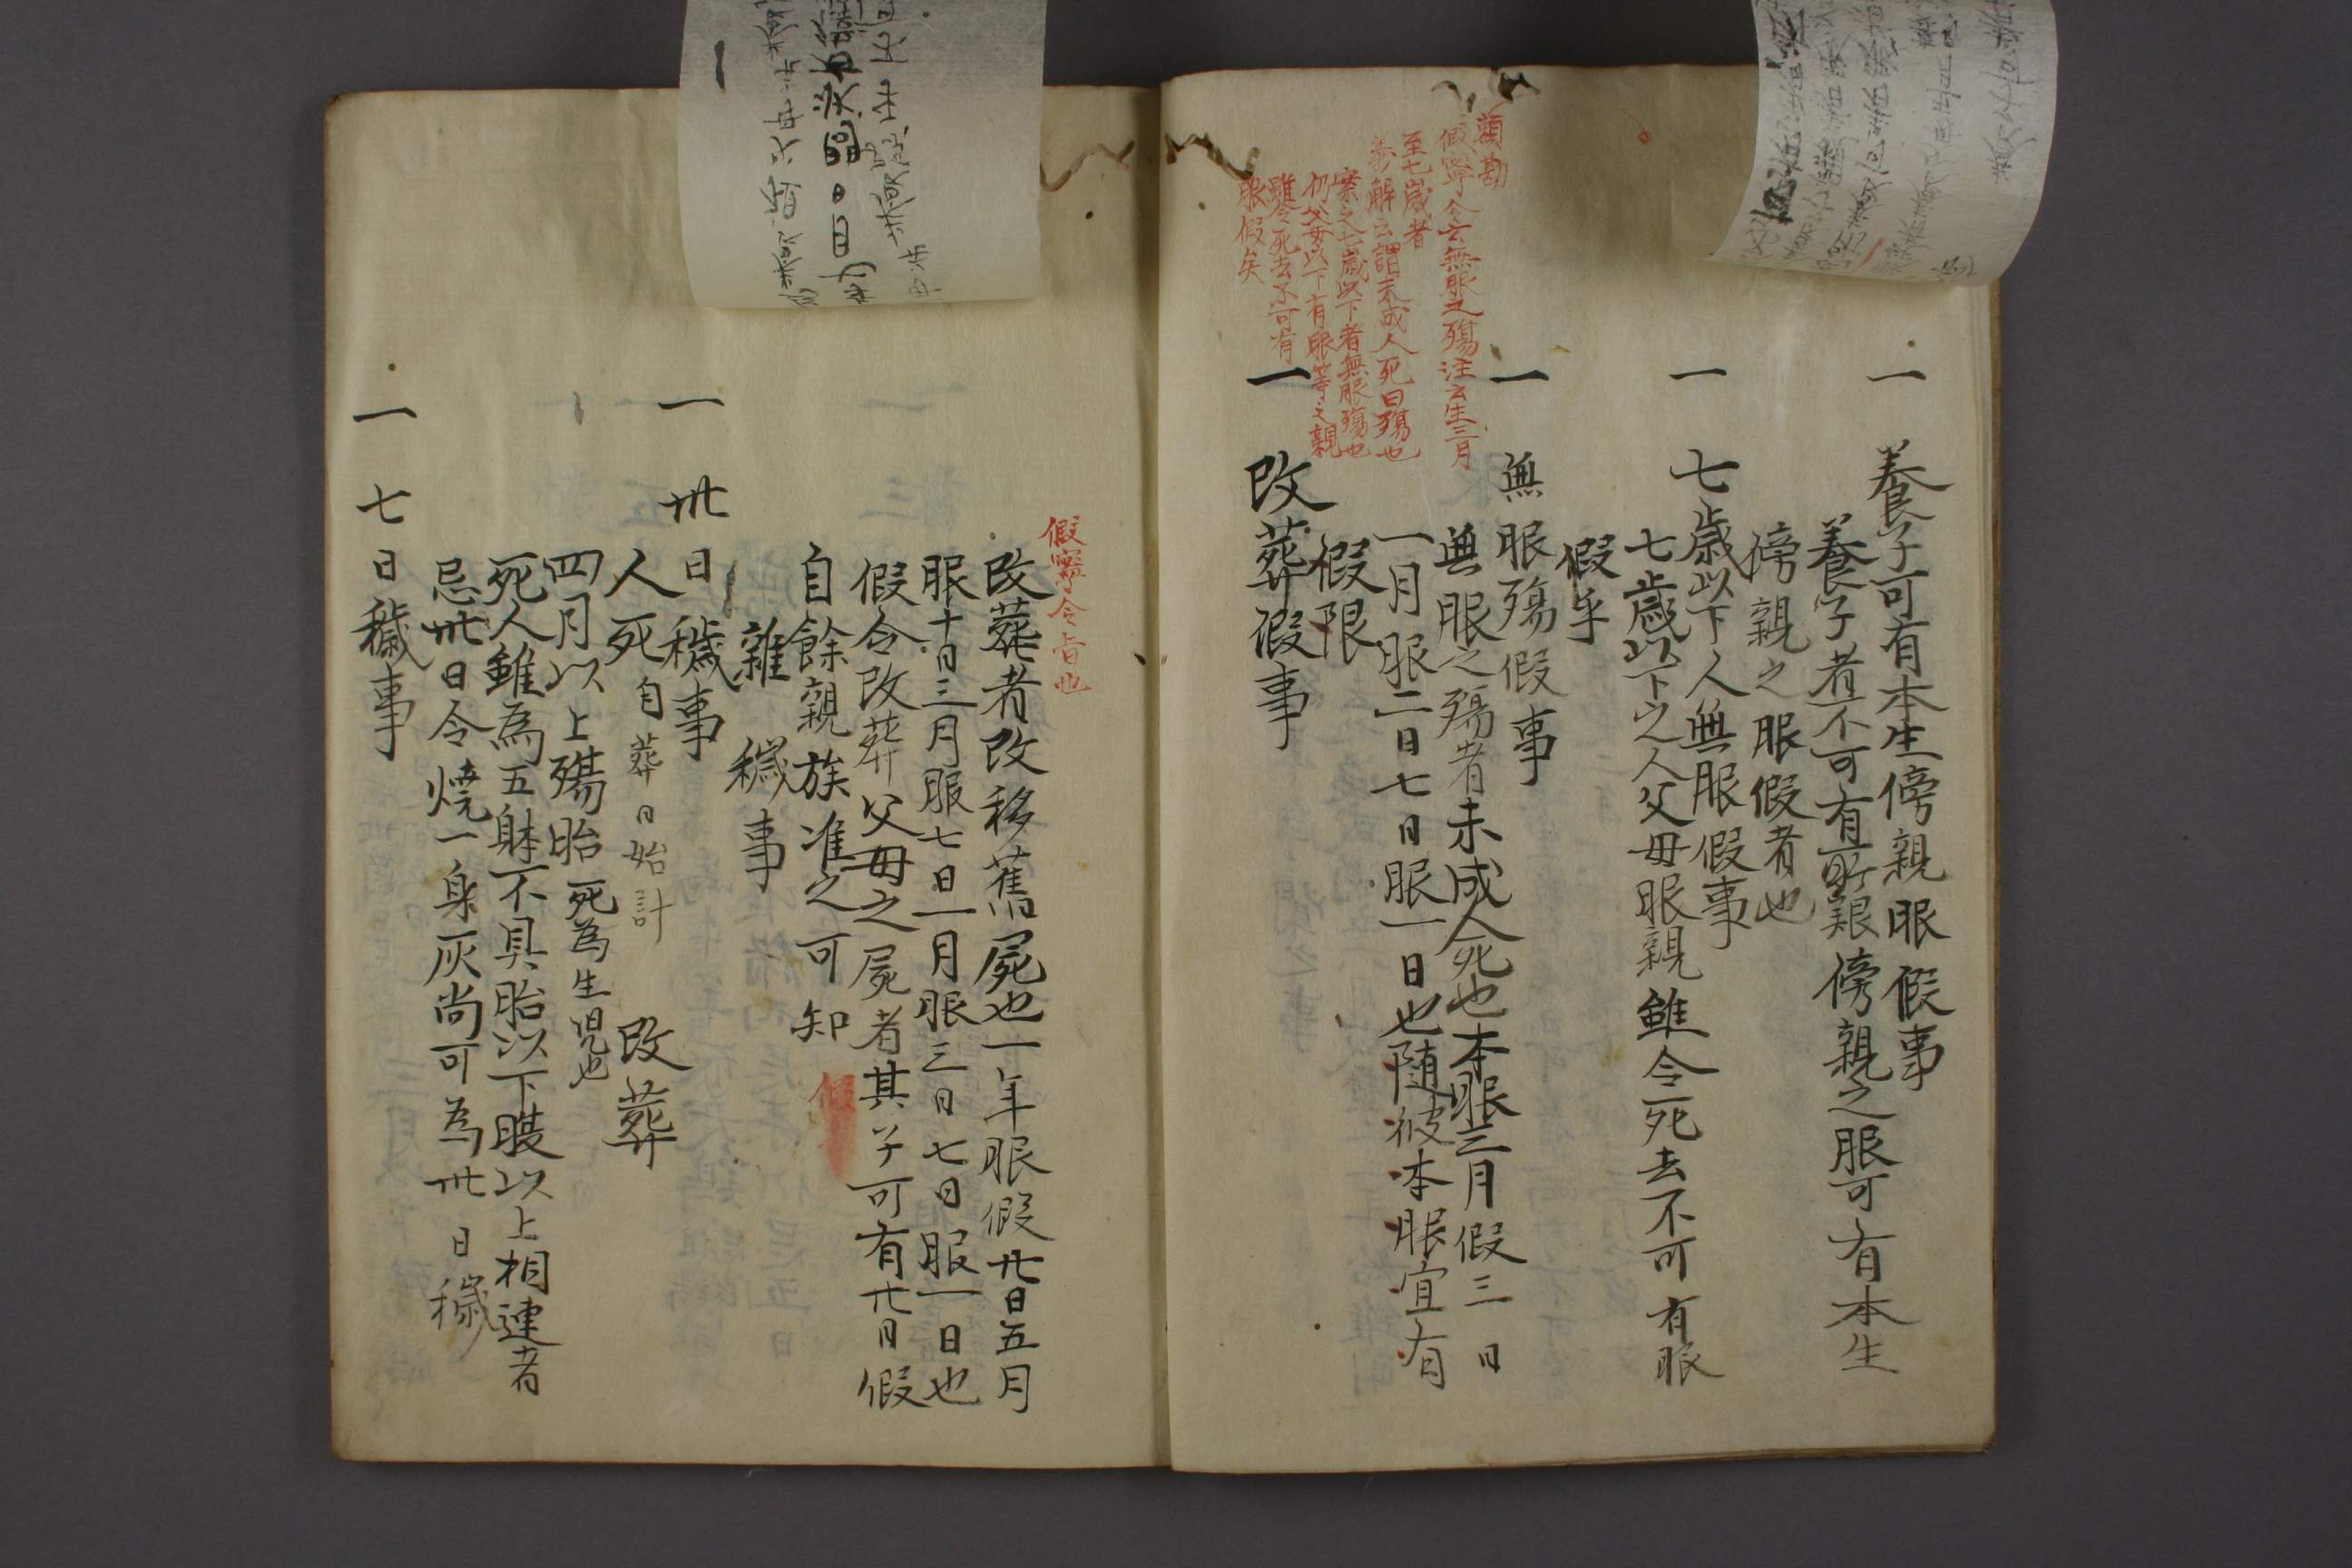 一　養子可有本生傍親服假事
養子者不可有所親傍親之服可有本生
傍親之服假者也
一　七歳以下人無服假事
七歳以下之人父母服親雖令死去不可有服
假乎
頭勘
假寧令云無服之殤注云生三月
至七歳者
義解云謂未成人死曰殤也
案之七歳以下者無服殤也
仍父母以下有服等之親
雖令死去不可有
服假矣
一　無服殤假事
無服之殤者未成人死也本服三月假三日
一月服二日七日服一日也随彼本服宜有
假限
一　改葬假事
假寧令旨也
改葬者改移舊屍也一年服假廿日五月
服十日三月服七日一月服三日七日服一日也
假令改葬父母之屍者其子可有廿日假
自餘親族准之可知
雜穢事
一　卅日穢事
人死自葬日始計　改葬
四月以上殤胎死為生児也
死人雖為五躰不具胎以下膝以上相連者
忌卅日令焼一身灰尚可為卅日穢
一　七日穢事